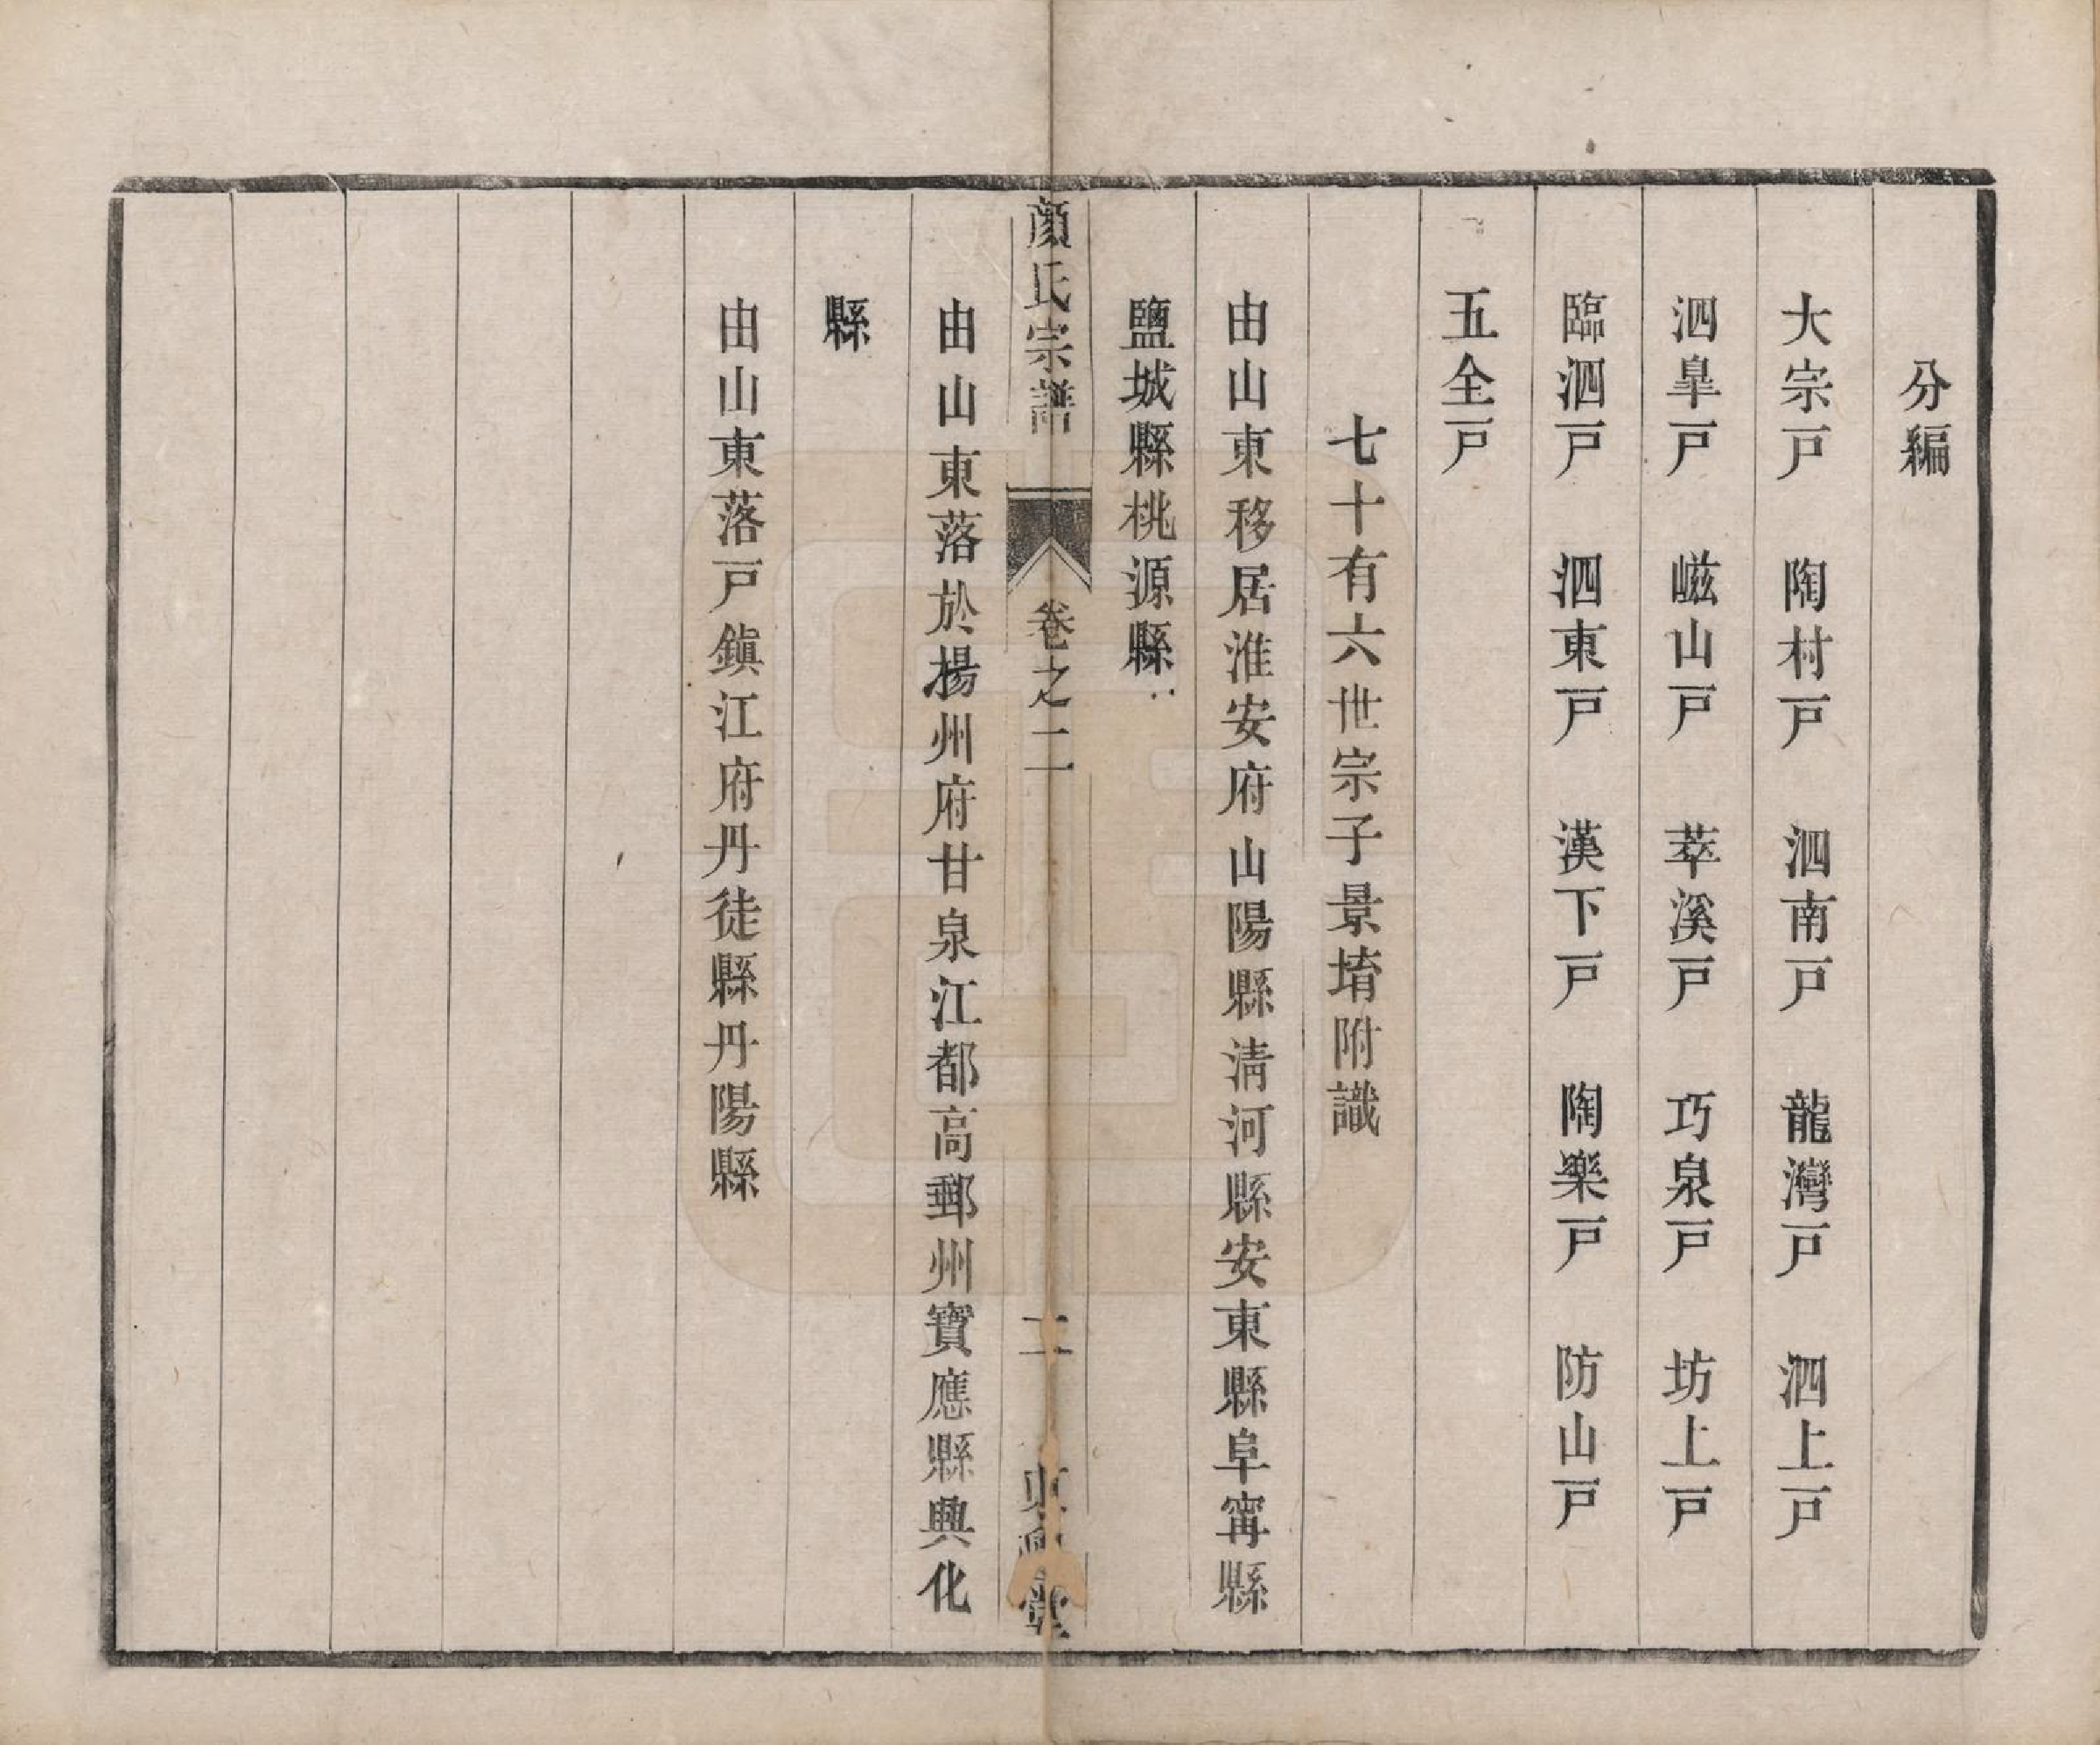 分編
大宗戸　陶村戸　泗南戸　龍灣戸　泗上戸
泗臯戸　嵫山戸　萃溪戸　巧泉戸　坊上戸
臨泗戸　泗東戸　漢下戸　陶樂戸　防山戸
五全戸
七十有六世宗子景堉附識
由山東移居淮安府山陽縣淸河縣安東縣阜寗縣
鹽城縣桃源縣
顏氏宗譜　卷之二　二　堂
由山東落於揚州府甘泉江都高郵州寶應縣興化
縣
由山東落戸鎭江府丹徒縣丹陽縣